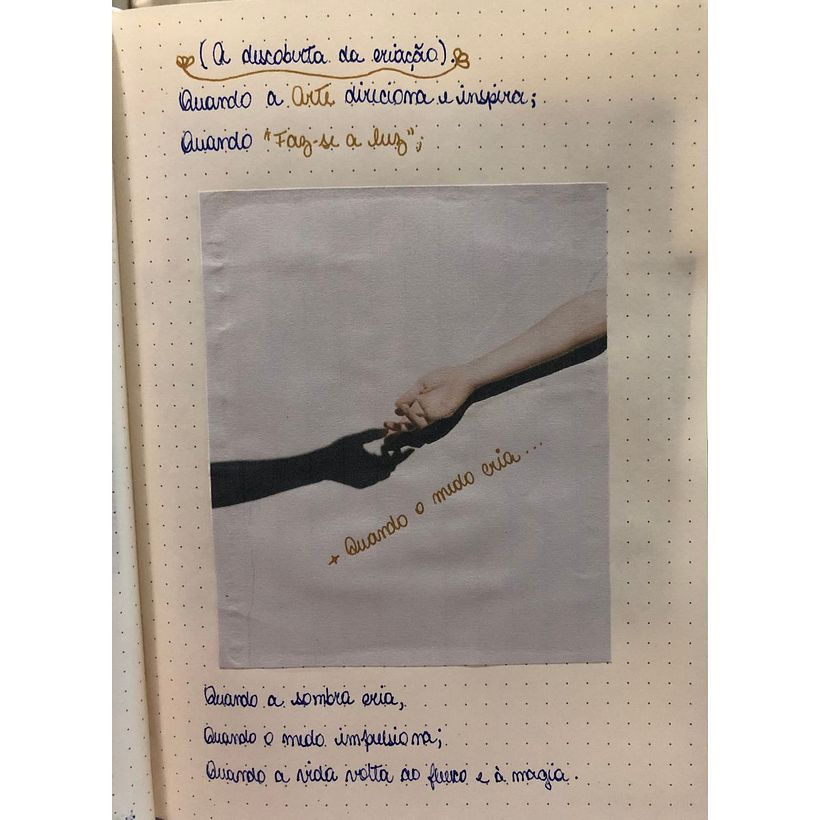 (A descoberta da criação).
Quando a Arte direciona e inspira;
Quando "Faz-se a luz";
+ Quando o medo cria...
Quando a sombra cria,
Quando o medo impulsiona;
Quando a vida volta ao fluxo e à magia.